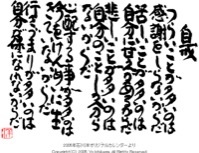 自戒
つらいことが多いのは
感謝をしらないからだ
苦しいことが多いのは
自分に甘えがあるからだ
悲しいことが多いのは
自分のことしか分らないからだ
心配する事が多いのは
今をけんめいに生きていないからだ
行きづまりが多いのは
自分が裸になれないからだ
石川洋オリジナルカレンダーより
Copyright (C) Yo Ishikawa, All Rights Reserved